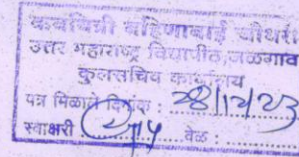 कवयित्री बहिणाबाई चौधरी
उत्तर महाराष्ट्र विद्यापीठ,जळगाव
कुलसचिव कार्यालय
पत्र मिळाले दिनांक : 28/12/23
स्वाक्षरी : वेळ :